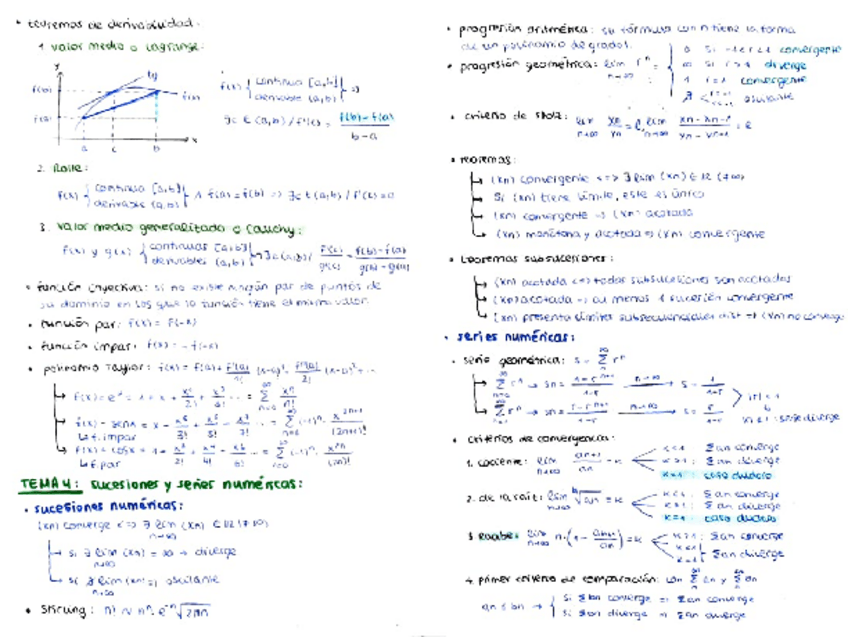 • teoremas de derivabilidad:
1. valor medio o Lagrange:
f(x) { continua [a,b] / derivable (a,b) } ⇒
∃c ∈ (a,b) / f'(c) = f(b)-f(a) / b-a
y
f(b)
f(a)
tg
f(x)
a c b x
2. Rolle:
f(x) { continua [a,b] / derivable (a,b) } ∧ f(a)=f(b) ⇒ ∃c ∈ (a,b) / f'(c)=0
3. valor medio generalizado o Cauchy:
f(x) y g(x) { continuas [a,b] / derivables (a,b) } ⇒ ∃c (a,b) / f'(c)/g'(c) = f(b)-f(a) / g(b)-g(a)
• función inyectiva: si no existe ningún par de puntos de
su dominio en los que la función tiene el mismo valor.
• función par: f(x) = f(-x)
• función impar: f(x) = -f(-x)
• polinomio Taylor: f(x) = f(a) + f'(a)/1! (x-a) + f''(a)/2! (x-a)² + ...
f(x) = eˣ = 1 + x + x²/2! + x³/3! ... = Σ xⁿ/n!
f(x) = senx = x - x³/3! + x⁵/5! - x⁷/7! ... = Σ (-1)ⁿ · x²ⁿ⁺¹/(2n+1)!
↳ f. impar
f(x) = cosx = 1 - x²/2! + x⁴/4! - x⁶/6! ... = Σ (-1)ⁿ · x²ⁿ/(2n)!
↳ f. par
TEMA 4: sucesiones y series numéricas:
• sucesiones numéricas:
(xn) converge <=> ∃ lim (xn) ∈ ℝ (≠∞)
n→∞
→ si ∃ lim (xn) = ∞ → diverge
→ si ∄ lim (xn) → oscilante
• Stirling: n! ~ nⁿ · e⁻ⁿ √2πn
• progresión aritmética: su fórmula con n tiene la forma
de un polinomio de grado 1.
• progresión geométrica: lim rⁿ =
n→∞
0 si -1<r<1 convergente
∞ si r>1 diverge
1 r=1 convergente
∄ oscilante
• criterio de Stolz: lim xn/yn = l, lim xn - xn-1 / yn - yn-1 = l
• teoremas:
→ (xn) convergente <=> ∃ lim (xn) ∈ ℝ (≠∞)
→ si (xn) tiene límite, este es único
→ (xn) convergente ⇒ (xn) acotada
→ (xn) monótona y acotada ⇒ (xn) convergente
• teoremas subsucesiones:
→ (xn) acotada <=> todas subsucesiones son acotadas
→ (xn) acotada → al menos 1 sucesión convergente
→ (xn) presenta límites subsecuenciales dist → (xn) no converge
• series numéricas:
• serie geométrica: s = Σ rⁿ
• criterios de convergencia:
1. cociente: lim an+1/an = k
k<1 : Σan converge
k>1 : Σan diverge
k=1 : caso dudoso
2. de la raíz: lim ⁿ√an = k
k<1 : Σan converge
k>1 : Σan diverge
k=1 : caso dudoso
3. Raabe: lim n · (1 - an+1/an) = k
k>1 : Σan converge
k<1
Σan diverge
4. primer criterio de comparación: con Σ an y Σ bn
an ≤ bn →
si Σbn converge ⇒ Σan converge
si Σan diverge ⇒ Σbn diverge